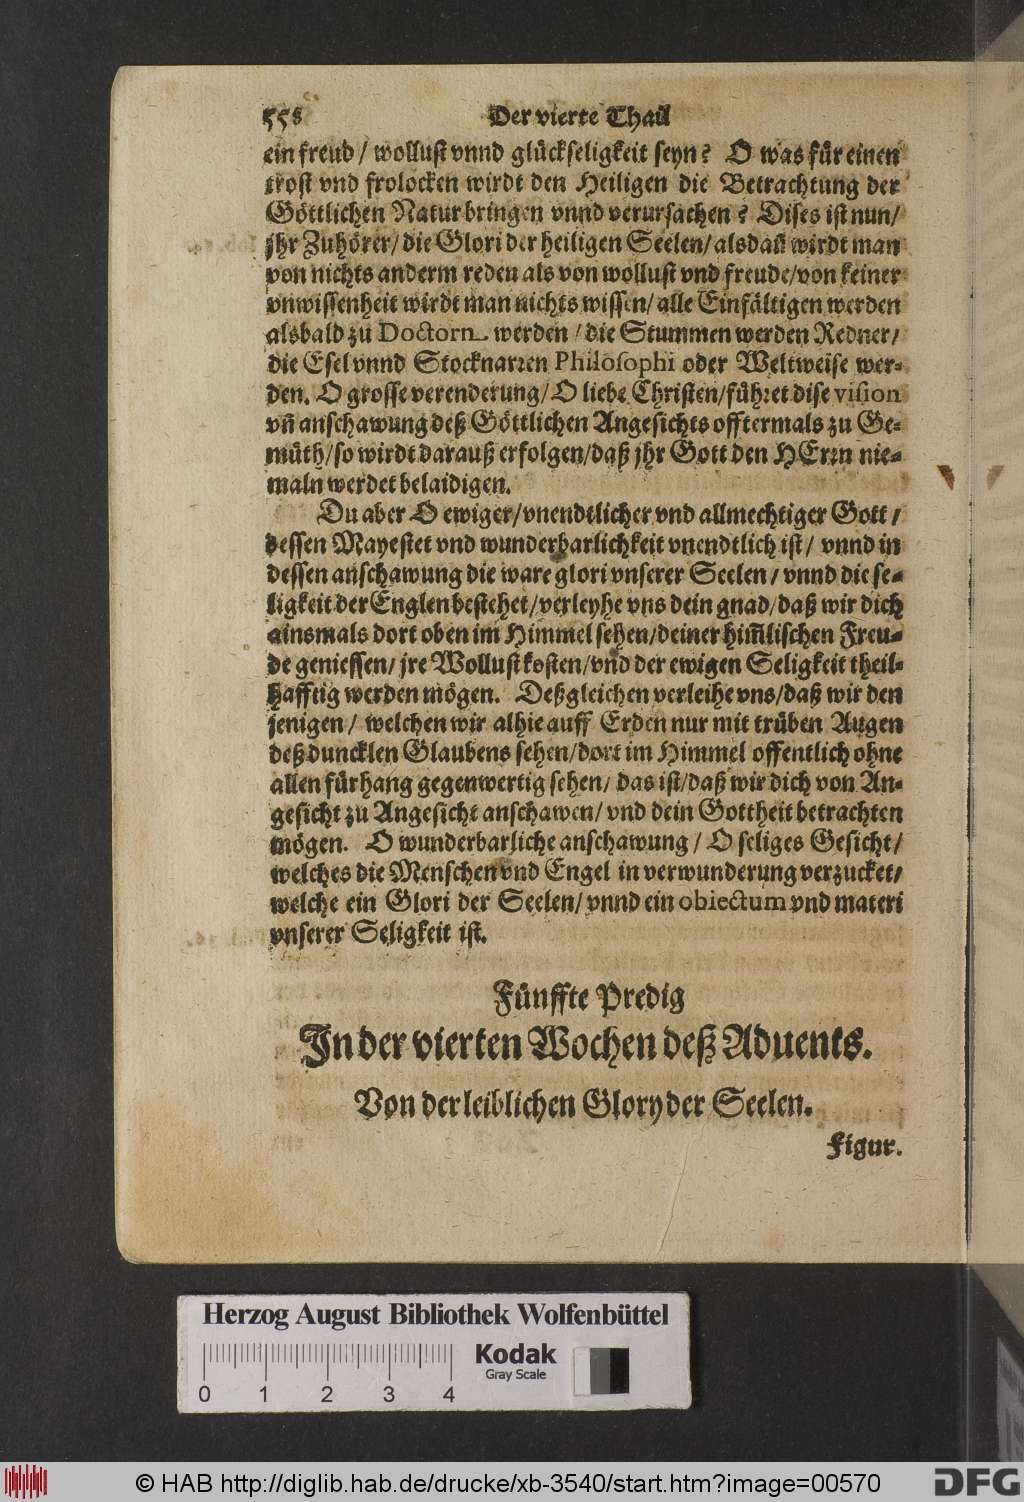 558 Der vierte Thail
ein freud / wollust vnnd glückseligkeit seyn? O was für einen
trost vnd frolocken wirdt den Heiligen die Betrachtung der
Göttlichen Natur bringen vnnd verursachen? Dises ist nun/
jhr Zuhörer/ die Glori der heiligen Seelen/ alsdañ wirdt man
von nichts anderm reden als von wollust vnd freude/von keiner
vnwissenheit wirdt man nichts wissen/ alle Einfältigen werden
alsbald zu Doctorn werden / die Stummen werden Redner/
die Esel vnnd Stocknarren Philosophi oder Weltweise wer-
den. O grosse verenderung/ O liebe Christen/führet dise vision
vñ anschawung deß Göttlichen Angesichts offtermals zu Ge-
müth/so wirdt darauß erfolgen/daß jhr Gott den HErrn nie-
maln werdet belaidigen.
Du aber O ewiger/vnendtlicher vnd allmechtiger Gott /
dessen Mayestet vnd wunderbarlichkeit vnendtlich ist/ vnnd in
dessen anschawung die ware glori vnserer Seelen / vnnd die se-
ligkeit der Englen bestehet/verleyhe vns dein gnad/daß wir dich
ainsmals dort oben im Himmel sehen/deiner him̃lischen Freu-
de geniessen/ jre Wollust kosten/vnd der ewigen Seligkeit theil-
hafftig werden mögen. Deßgleichen verleihe vns/daß wir den
jenigen / welchen wir alhie auff Erden nur mit trüben Augen
deß duncklen Glaubens sehen/dort im Himmel offentlich ohne
allen fürhang gegenwertig sehen/ das ist/daß wir dich von An-
gesicht zu Angesicht anschawen/ vnd dein Gottheit betrachten
mögen. O wunderbarliche anschawung / O seliges Gesicht/
welches die Menschen vnd Engel in verwunderung verzucket/
welche ein Glori der Seelen/ vnnd ein obiectum vnd materi
vnserer Seligkeit ist.
Fünffte Predig
In der vierten Wochen deß Aduents.
Von der leiblichen Glory der Seelen.
Figur.
Herzog August Bibliothek Wolfenbüttel
Kodak
Gray Scale
0 1 2 3 4
© HAB http://diglib.hab.de/drucke/xb-3540/start.htm?image=00570
DFG